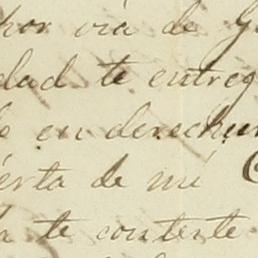 por via de G
dad te entreg
en derechur
erta de mi
te conteste